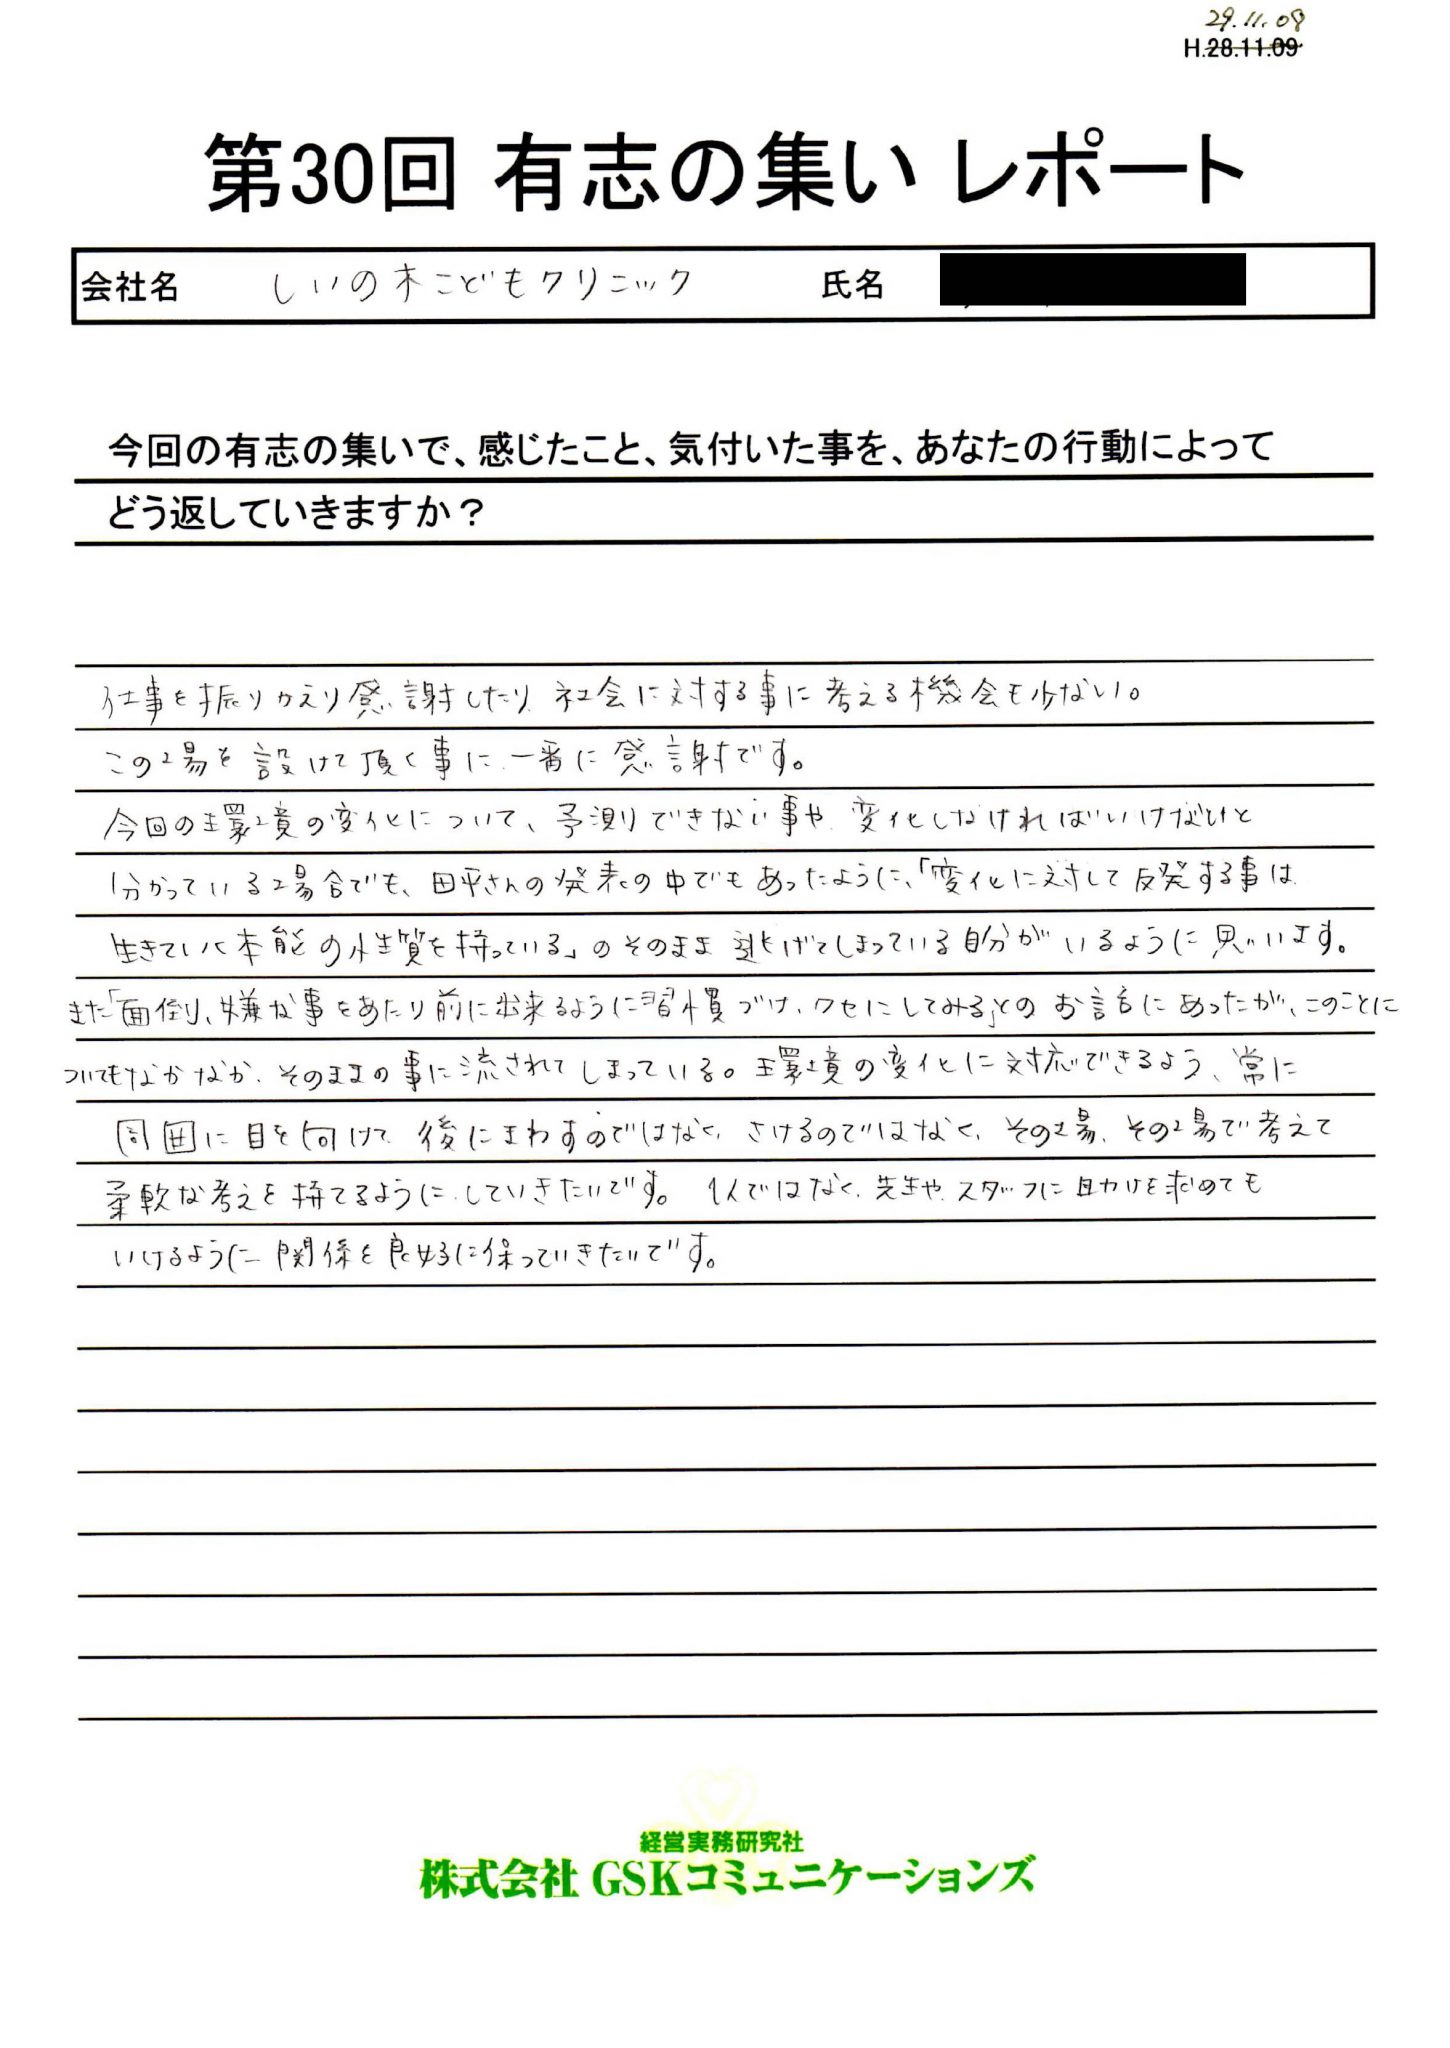 29.11.08
H.28.11.09
第30回 有志の集い レポート
会社名 しいの木こどもクリニック 氏名
今回の有志の集いで、感じたこと、気付いた事を、あなたの行動によって
どう返していきますか？
仕事を振りかえり感謝したり、社会に対する事に考える機会も少ない。
この場を設けて頂く事に、一番に感謝です。
今回の環境の変化について、予測りできない事や、変化しなければいけないと
分かっている場合でも、田平さんの発表の中でもあったように、「変化に対して反発する事は
生きていく本能の性質を持っている」のそのまま逃げてしまっている自分がいるように思います。
また「面倒、嫌な事をあたり前に出来るように習慣づけ、クセにしてみる」とのお言にあったが、このことに
ついてもなかなか、そのままの事に流されてしまっている。環境の変化に対応できるよう、常に
周囲に目を向けて、後にまわすのではなく、さけるのではなく、その場、その場で考えて
柔軟な考えを持てるように、していきたいです。 1人ではなく、先生や、スタッフに助けを求めても
いけるように関係を良好に保っていきたいです。
経営実務研究社
株式会社 GSKコミュニケーションズ